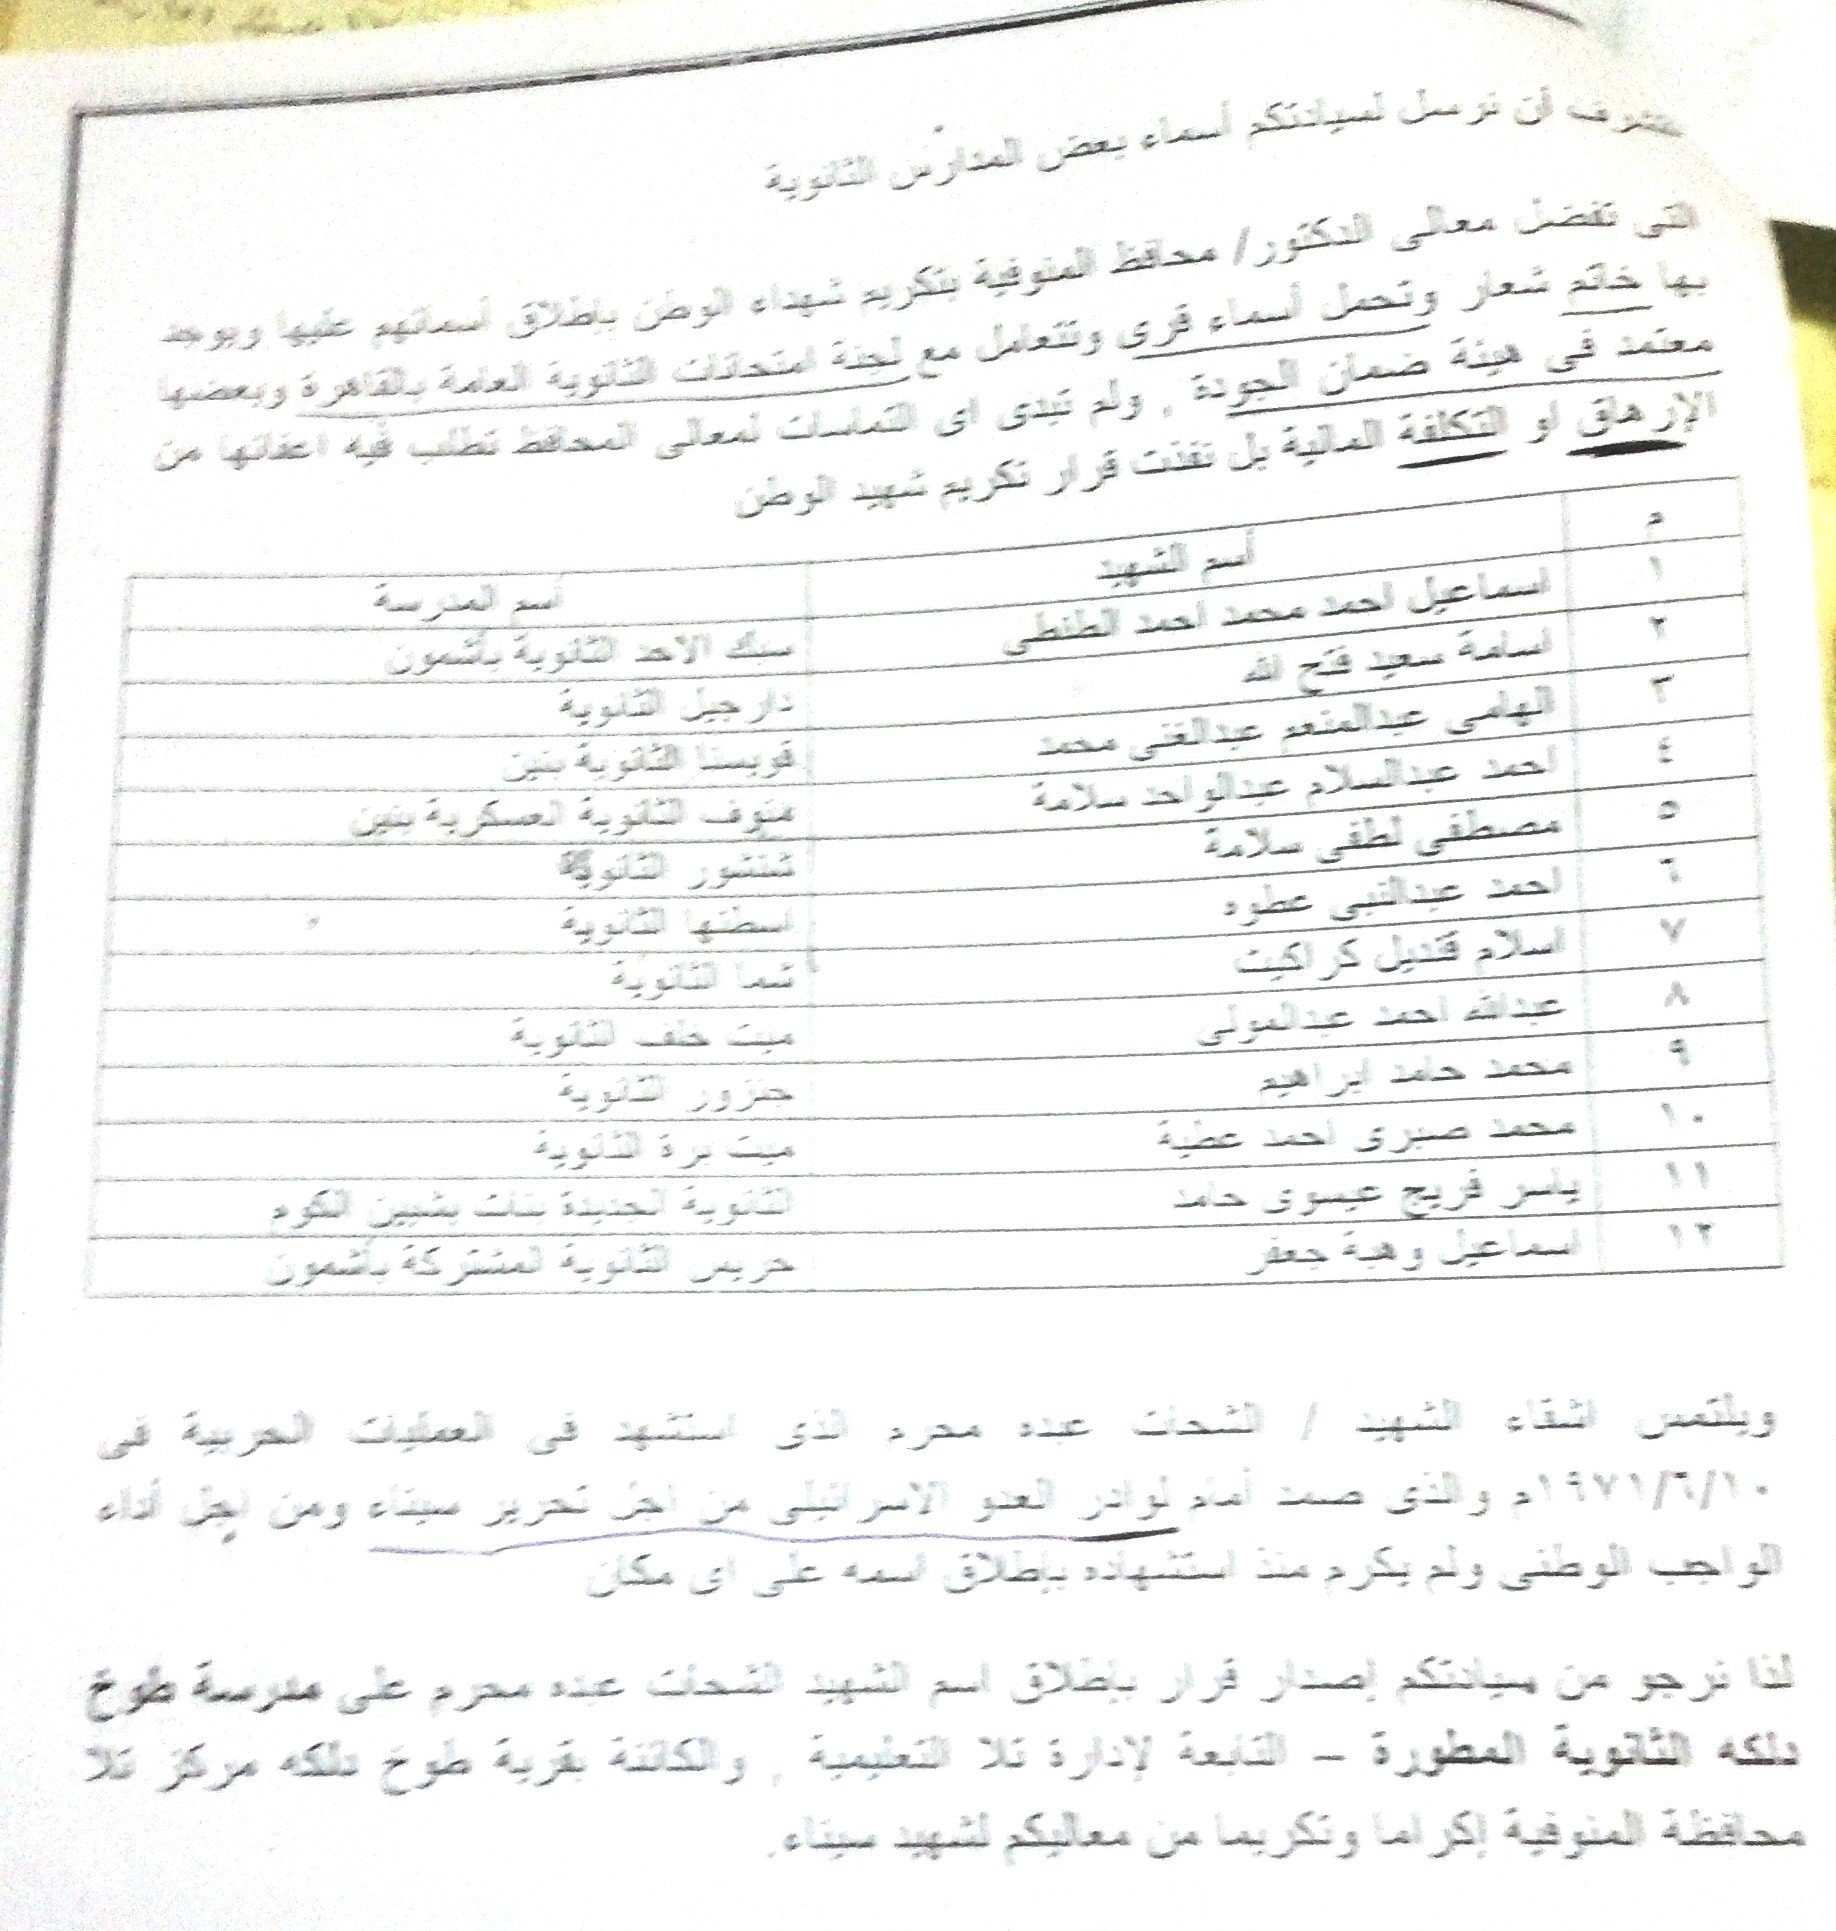 نتشرف أن نرسل لسيادتكم أسماء بعض المدارس الثانوية
التى تفضل معالى الدكتور/ محافظ المنوفية بتكريم شهداء الوطن بإطلاق أسمائهم عليها ويوجد
بها خاتم شعار وتحمل أسماء قرى وتتعامل مع لجنة امتحانات الثانوية العامة بالقاهرة وبعضها
معتمد فى هيئة ضمان الجودة , ولم تبدى اى التماسات لمعالى المحافظ تطلب فيه اعفائها من
الإرهاق او التكلفة المالية بل نفذت قرار تكريم شهيد الوطن
م أسم الشهيد أسم المدرسة
١ اسماعيل احمد محمد احمد الطنطى سبك الاحد الثانوية بأشمون
٢ اسامة سعيد فتح الله دارجيل الثانوية
٣ الهامى عبدالمنعم عبدالغنى محمد قويسنا الثانوية بنين
٤ احمد عبدالسلام عبدالواحد سلامة منوف الثانوية العسكرية بنين
٥ مصطفى لطفى سلامة شنشور الثانوية
٦ احمد عبدالنبى عطوه اسطنها الثانوية
٧ اسلام قنديل كراكيت شما الثانوية
٨ عبدالله احمد عبدالمولى ميت خلف الثانوية
٩ محمد حامد ابراهيم جنزور الثانوية
١٠ محمد صبرى احمد عطية ميت برة الثانوية
١١ ياسر فريج عيسوى حامد الثانوية الجديدة بنات بشبين الكوم
١٢ اسماعيل وهبة جعفر جريس الثانوية المشتركة بأشمون
ويلتمس اشقاء الشهيد / الشحات عبده محرم الذى استشهد فى العمليات الحربية فى
١٩٧١/٦/١٠م والذى صمد أمام لوادر العدو الاسرائيلى من اجل تحرير سيناء ومن اجل أداء
الواجب الوطنى ولم يكرم منذ استشهاده بإطلاق اسمه على اى مكان
لذا نرجو من سيادتكم إصدار قرار بإطلاق اسم الشهيد الشحات عبده محرم على مدرسة طوخ
دلكه الثانوية المطورة – التابعة لإدارة تلا التعليمية , والكائنة بقرية طوخ دلكه مركز تلا
محافظة المنوفية إكراما وتكريما من معاليكم لشهيد سيناء.